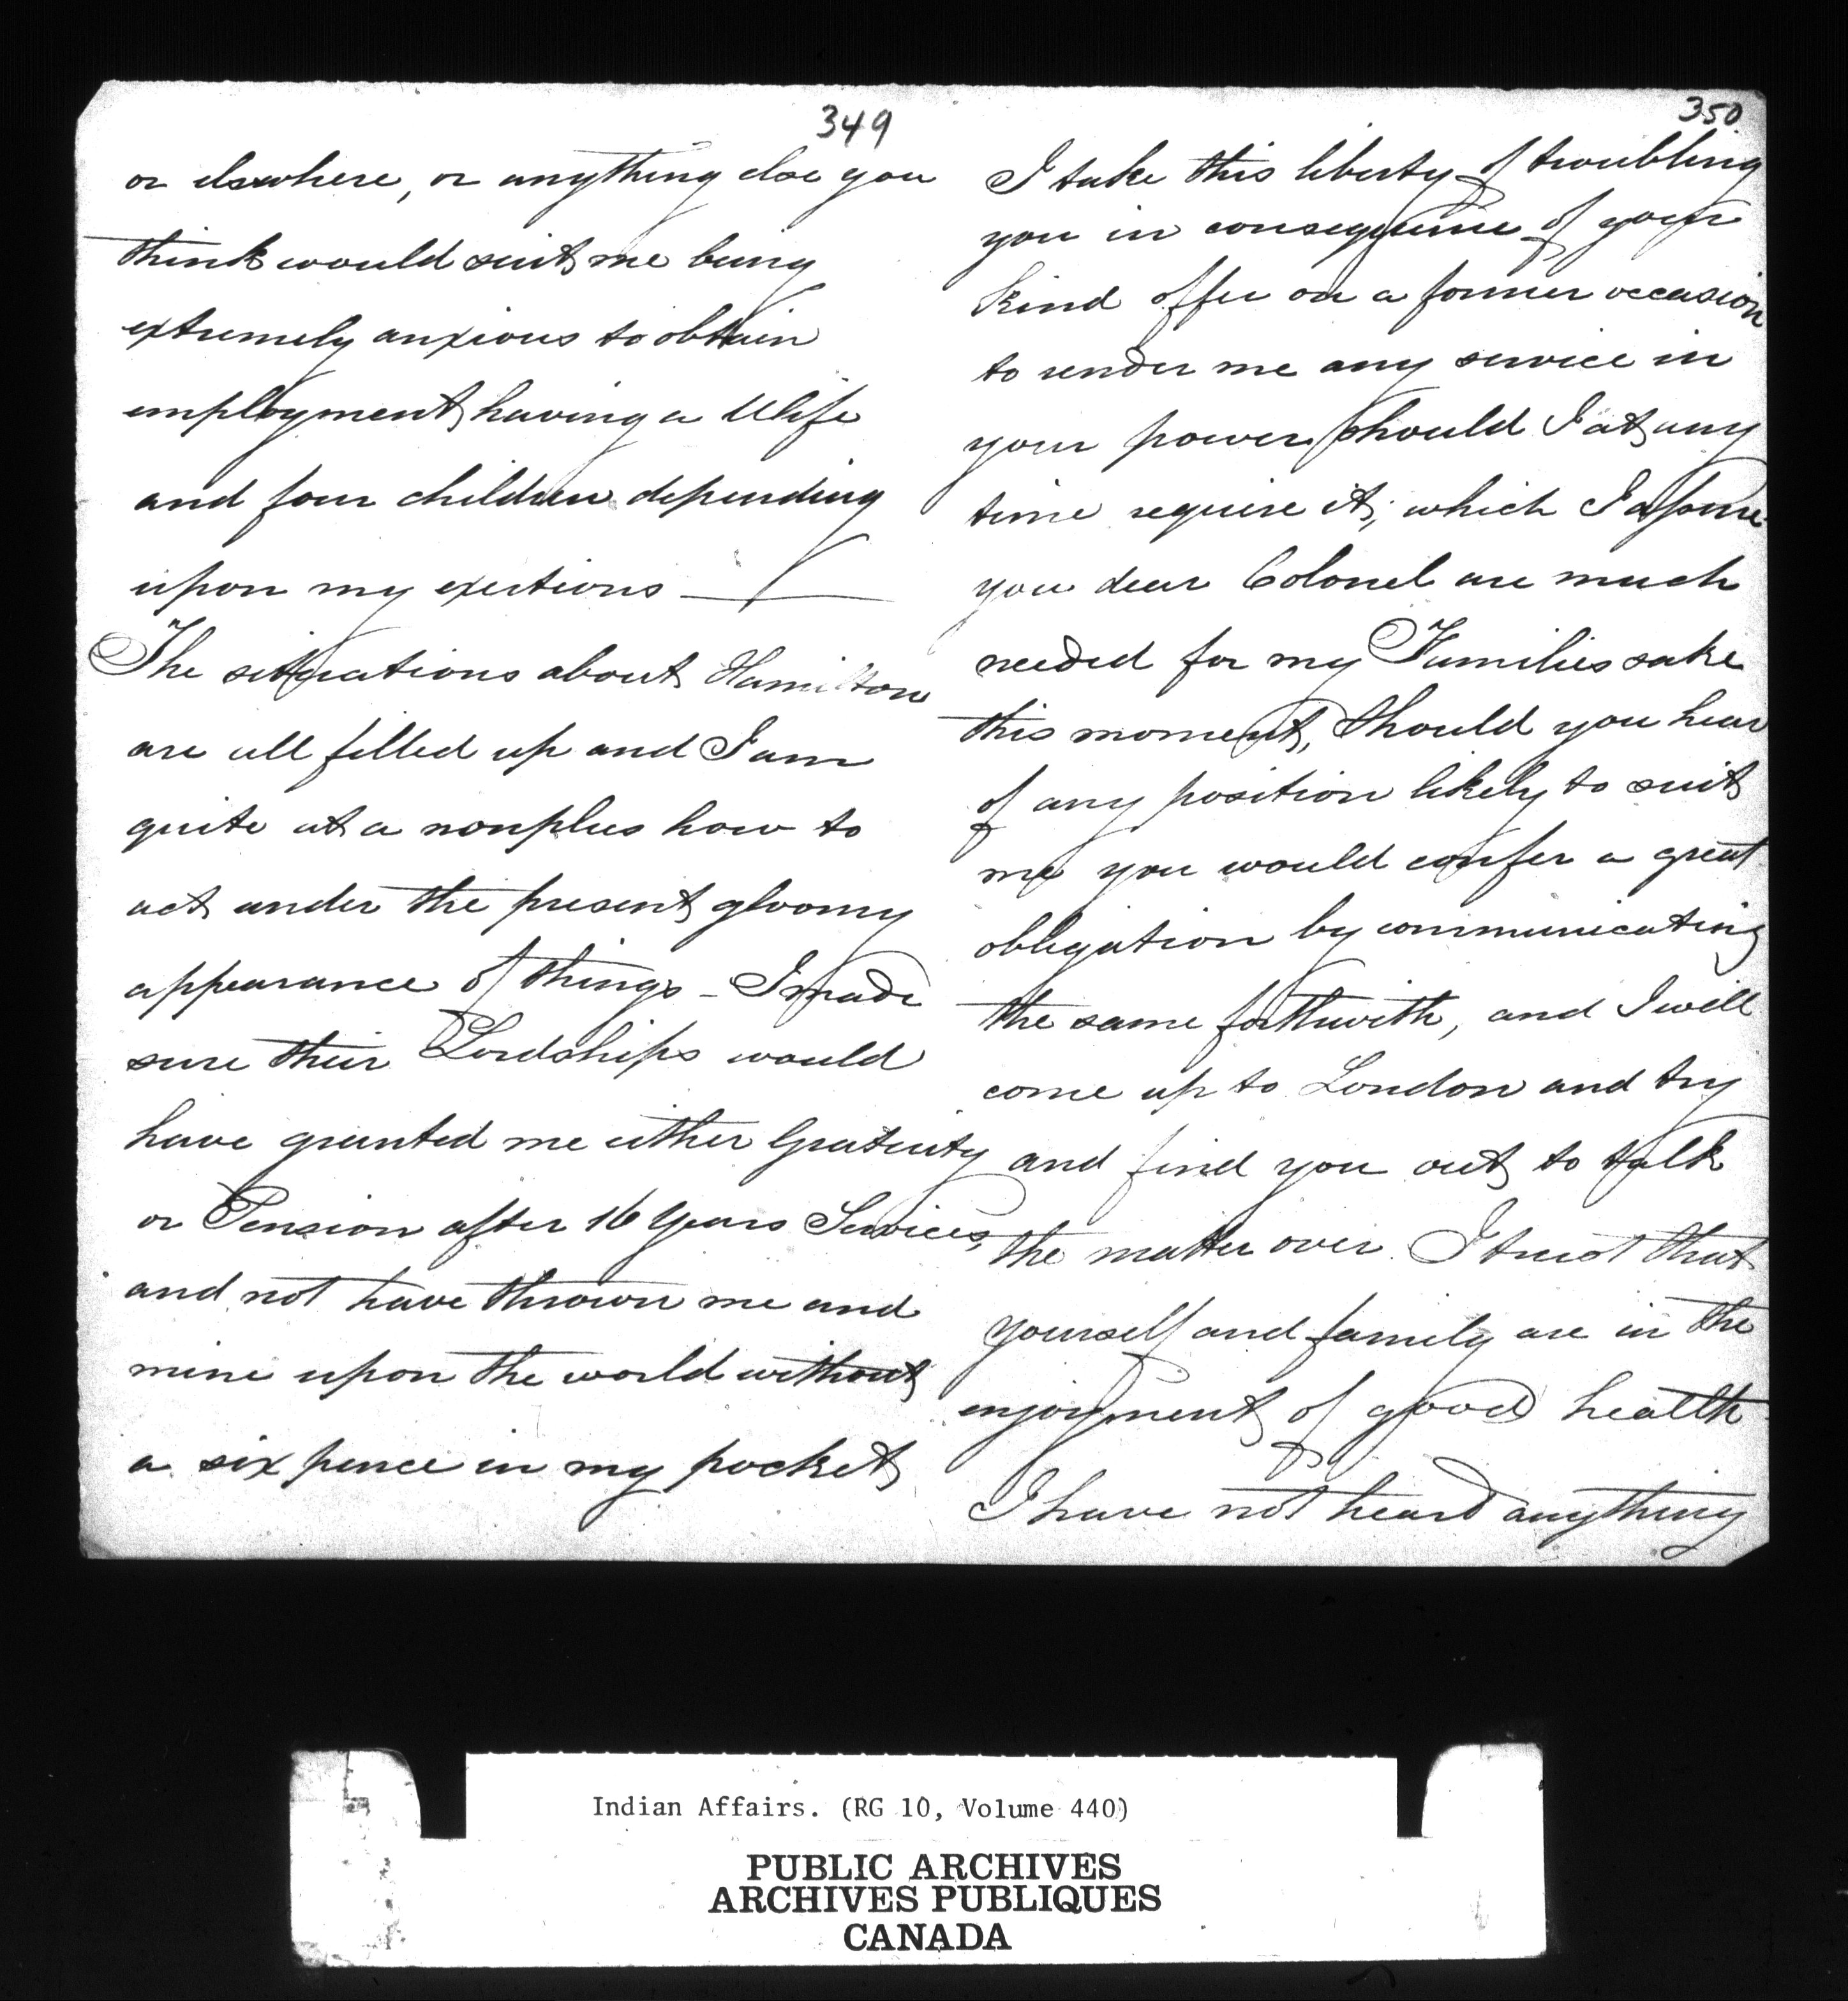 349
or elsewhere, or anything else you
think would suit me being
extremely anxious to obtain
employment having a Wife
and four children depending
upon my exertions —
The situations about Hamilton
are all filled up and I am
quite at a nonplus how to
act under the present gloomy
appearance of things - I made
sure their Lordships would
have granted me either Gratuity
or Pension after 16 Years Services,
and not have thrown me and
mine upon the world without
a six pence in my pocket
350
I take this liberty of troubling
you in consequence of your
kind offer on a former occasion
to render me any service in
your power should I at any
time require it, which I assure
you dear Colonel are much
needed for my Families sake
this moment, should you hear
of any position likely to suit
me you would confer a great
obligation by communicating
the same forthwith, and I will
come up to London and try
and find you out to talk
the matter over. I trust that
yourself and family are in the
enjoyment of good health
I have not heard anything
Indian Affairs. (RG 10, Volume 440)
PUBLIC ARCHIVES
ARCHIVES PUBLIQUES
CANADA